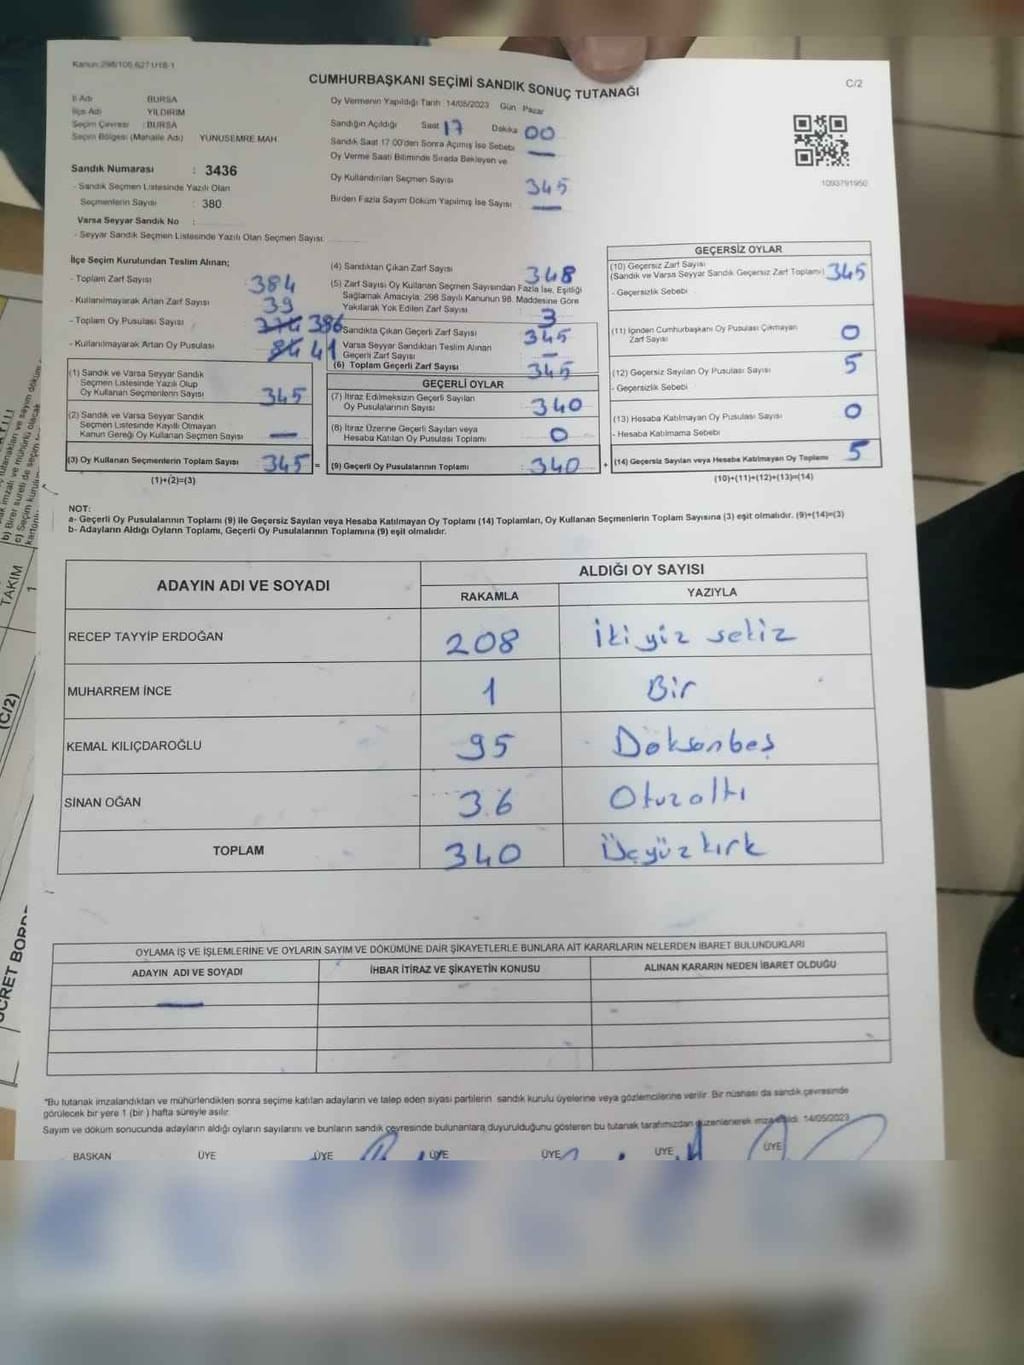 Kanun:298/105,6271/18-1
CUMHURBAŞKANI SEÇİMİ SANDIK SONUÇ TUTANAĞI
C/2
İl Adı BURSA
İlçe Adı YILDIRIM
Seçim Çevresi :BURSA
Seçim Bölgesi (Mahalle Adı) YUNUSEMRE MAH
Sandık Numarası : 3436
- Sandık Seçmen Listesinde Yazılı Olan
Seçmenlerin Sayısı : 380
Varsa Seyyar Sandık No :
- Seyyar Sandık Seçmen Listesinde Yazılı Olan Seçmen Sayısı:
Oy Vermenin Yapıldığı Tarih :14/05/2023 Gün Pazar
Sandığın Açıldığı Saat 17 Dakika 00
Sandık Saat 17.00'den Sonra Açılmış İse Sebebi —
Oy Verme Saati Bitiminde Sırada Bekleyen ve
Oy Kullandırılan Seçmen Sayısı 345
Birden Fazla Sayım Döküm Yapılmış İse Sayısı —
1093791950
İlçe Seçim Kurulundan Teslim Alınan;
- Toplam Zarf Sayısı 384
- Kullanılmayarak Artan Zarf Sayısı 39
- Toplam Oy Pusulası Sayısı 386
- Kullanılmayarak Artan Oy Pusulası 84 41
(1) Sandık ve Varsa Seyyar Sandık
Seçmen Listesinde Yazılı Olup
Oy Kullanan Seçmenlerin Sayısı 345
(2) Sandık ve Varsa Seyyar Sandık
Seçmen Listesinde Kayıtlı Olmayan
Kanun Gereği Oy Kullanan Seçmen Sayısı —
(3) Oy Kullanan Seçmenlerin Toplam Sayısı 345 =
(1)+(2)=(3)
(4) Sandıktan Çıkan Zarf Sayısı 348
(5) Zarf Sayısı Oy Kullanan Seçmen Sayısından Fazla İse, Eşitliği
Sağlamak Amacıyla; 298 Sayılı Kanunun 98. Maddesine Göre
Yakılarak Yok Edilen Zarf Sayısı 3
Sandıkta Çıkan Geçerli Zarf Sayısı 345
Varsa Seyyar Sandıktan Teslim Alınan
Geçerli Zarf Sayısı —
(6) Toplam Geçerli Zarf Sayısı 345
GEÇERLİ OYLAR
(7) İtiraz Edilmeksizin Geçerli Sayılan
Oy Pusulalarının Sayısı 340
(8) İtiraz Üzerine Geçerli Sayılan veya
Hesaba Katılan Oy Pusulası Toplamı 0
(9) Geçerli Oy Pusulalarının Toplamı : 340 +
GEÇERSİZ OYLAR
(10) Geçersiz Zarf Sayısı
(Sandık ve Varsa Seyyar Sandık Geçersiz Zarf Toplamı) 345
- Geçersizlik Sebebi
(11) İçinden Cumhurbaşkanı Oy Pusulası Çıkmayan
Zarf Sayısı 0
(12) Geçersiz Sayılan Oy Pusulası Sayısı 5
- Geçersizlik Sebebi
(13) Hesaba Katılmayan Oy Pusulası Sayısı 0
- Hesaba Katılmama Sebebi
(14) Geçersiz Sayılan veya Hesaba Katılmayan Oy Toplamı 5
(10)+(11)+(12)+(13)=(14)
NOT:
a- Geçerli Oy Pusulalarının Toplamı (9) ile Geçersiz Sayılan veya Hesaba Katılmayan Oy Toplamı (14) Toplamları, Oy Kullanan Seçmenlerin Toplam Sayısına (3) eşit olmalıdır. (9)+(14)=(3)
b- Adayların Aldığı Oyların Toplamı, Geçerli Oy Pusulalarının Toplamına (9) eşit olmalıdır.
ADAYIN ADI VE SOYADI ALDIĞI OY SAYISI
RAKAMLA YAZIYLA
RECEP TAYYİP ERDOĞAN 208 İkiyüz sekiz
MUHARREM İNCE 1 Bir
KEMAL KILIÇDAROĞLU 95 Doksanbeş
SİNAN OĞAN 36 Otuzaltı
TOPLAM 340 Üçyüzkırk
OYLAMA İŞ VE İŞLEMLERİNE VE OYLARIN SAYIM VE DÖKÜMÜNE DAİR ŞİKAYETLERLE BUNLARA AİT KARARLARIN NELERDEN İBARET BULUNDUKLARI
ADAYIN ADI VE SOYADI İHBAR İTİRAZ VE ŞİKAYETİN KONUSU ALINAN KARARIN NEDEN İBARET OLDUĞU
—
*Bu tutanak imzalandıktan ve mühürlendikten sonra seçime katılan adayların ve talep eden siyasi partilerin sandık kurulu üyelerine veya gözlemcilerine verilir. Bir nüshası da sandık çevresinde
görülecek bir yere 1 (bir ) hafta süreyle asılır.
Sayım ve döküm sonucunda adayların aldığı oyların sayılarını ve bunların sandık çevresinde bulunanlara duyurulduğunu gösteren bu tutanak tarafımızdan düzenlenerek imza edildi. 14/05/2023
BAŞKAN ÜYE ÜYE ÜYE ÜYE ÜYE ÜYE
TAKIM
1
(C/2)